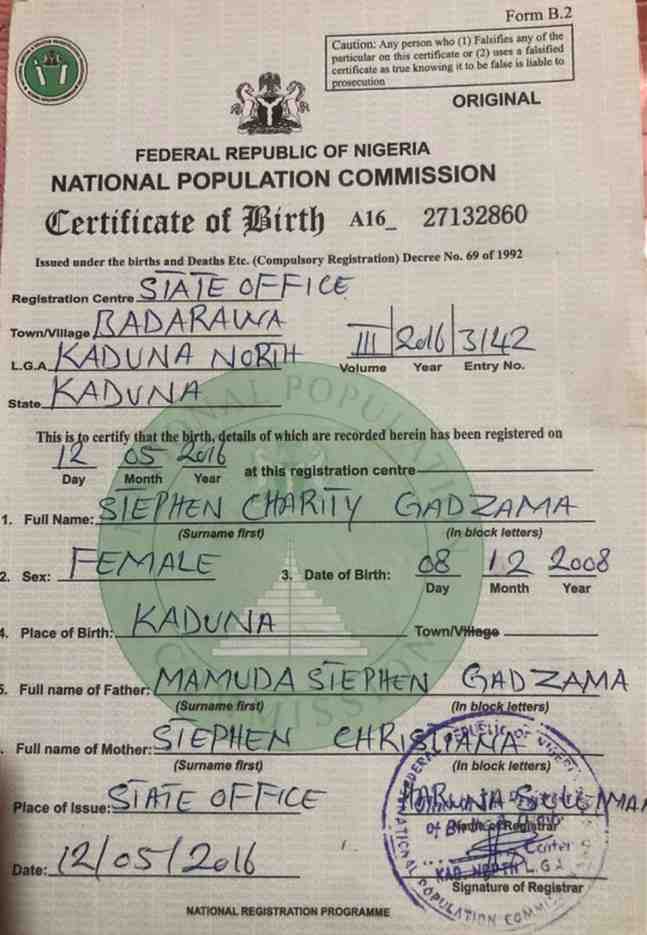 Form B.2
Caution: Any person who (1) Falsifies any of the
particular on this certificate or (2) uses a falsified
certificate as true knowing it to be false is liable to
prosecution
ORIGINAL
FEDERAL REPUBLIC OF NIGERIA
NATIONAL POPULATION COMMISSION
Certificate of Birth A16_ 27132860
Issued under the births and Deaths Etc. (Compulsory Registration) Decree No. 69 of 1992
Registration Centre STATE OFFICE
Town/Village BADARAWA
L.G.A. KADUNA NORTH III 2016 3142
Volume Year Entry No.
State KADUNA
This is to certify that the birth, details of which are recorded herein has been registered on
12 05 2016 at this registration centre
Day Month Year
1. Full Name: STEPHEN CHARITY GADZAMA
(Surname first) (In block letters)
2. Sex: FEMALE 3. Date of Birth: 08 12 2008
Day Month Year
4. Place of Birth: KADUNA Town/Village
5. Full name of Father: MAMUDA STEPHEN GADZAMA
(Surname first) (In block letters)
. Full name of Mother: STEPHEN CHRISTIANA
(Surname first) (In block letters)
Place of Issue: STATE OFFICE HARUNA
Registrar
Center
KAD. NORTH L.G.A
Date: 12/05/2016
Signature of Registrar
NATIONAL POPULATION COMMISSION
NATIONAL REGISTRATION PROGRAMME